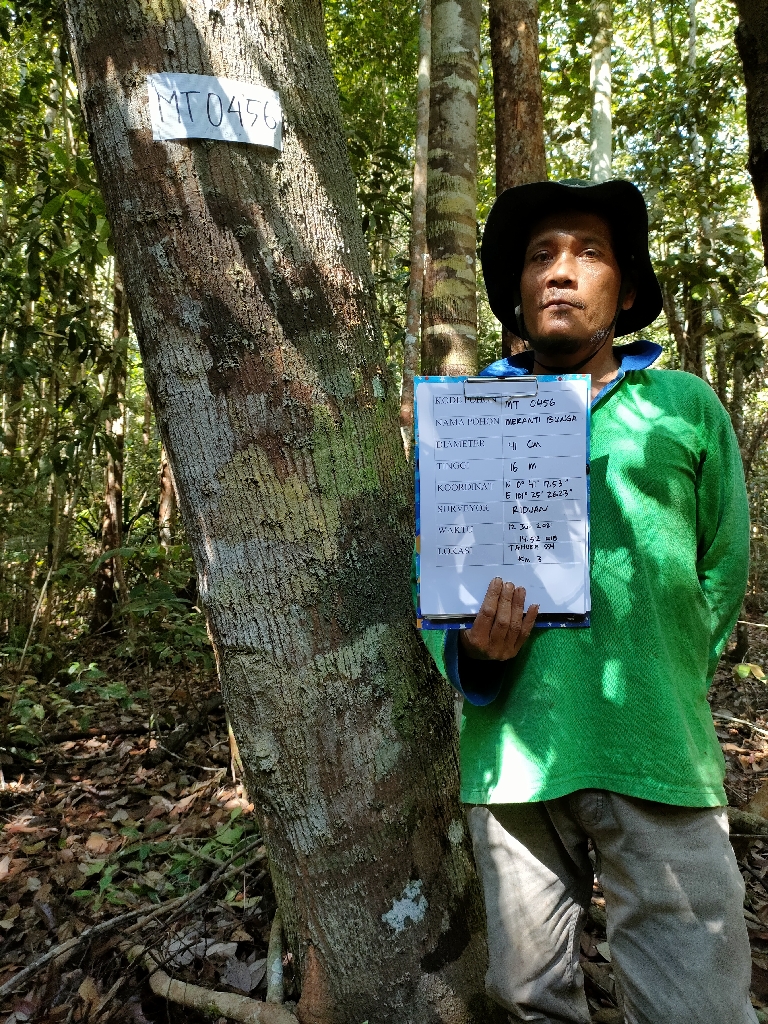 MT 0456
KODE POHON MT 0456
NAMA POHON MERANTI BUNGA
DIAMETER 41 CM
TINGGI 16 m
KOORDINAT N 0° 4' 17.53"
E 101° 25' 26.23"
SURVEYOR RIDWAN
WAKTU 12
14.52 WIB
LOKASI
Km 3